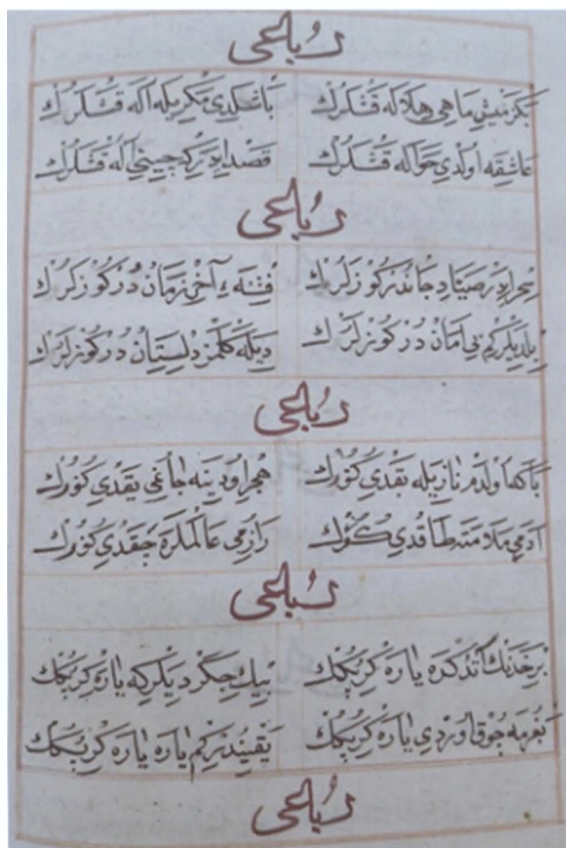 رباعی
بكزتمش ماهی هلاله قشلرك باشلدی مكريله اله قشلرك
عاشقه اولدی حواله قشلرك قصد ايدر كه اله قشلرك
رباعی
سحر ايدر صياد جاندر كوزلرك فتنهٔ آخر زماندر كوزلرك
بلديلر كم بی اماندر كوزلرك ديله كلمز دلستاندر كوزلرك
رباعی
اولدم نازيله بقدی كوزك هجر اودينه يقدی كوزك
آدمی ملامته طاقدی كوزك رازمی عالملره چقدی كوزك
رباعی
بر خدنك آتدكده ياره كربكك بيك جكر ديلر كه ياره كربكك
بغرمه چوق اوردی ياره كربكك يقيندر كم ياره ياره كربكك
رباعی